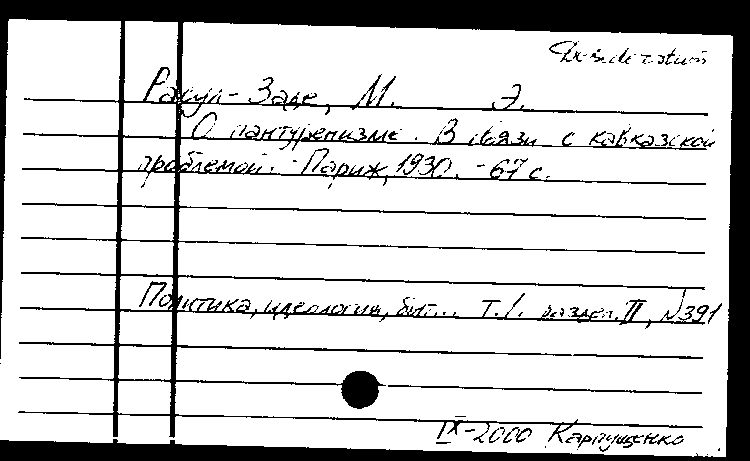 Desideratum
Расул-Заде, М. Э.
О пантуренизме. В связи с кавказской
проблемой. - Париж, 1930. - 67 с.
Политика, идеология, быт... Т.1. раздел. II, №391
IX-2000 Карпущенко